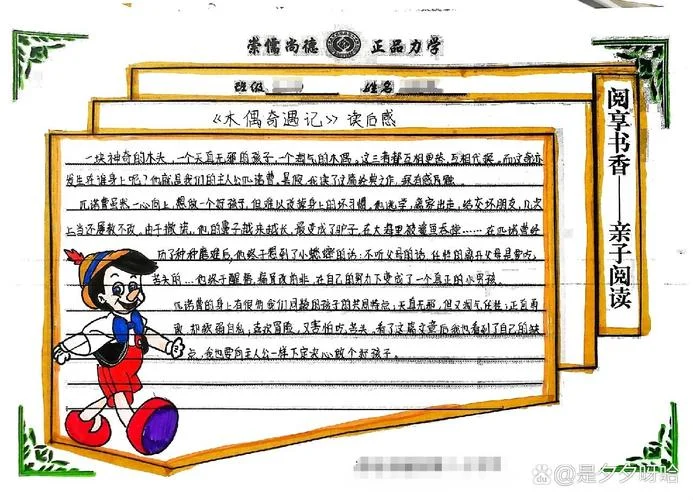 崇儒尚德 正品力学
班级 姓名
《木偶奇遇记》读后感
阅享书香——亲子阅读
一块神奇的木头，一个天真无邪的孩子，一个淘气的木偶，这三者都互相更替，互相代换。而这奇迹
发生在谁身上呢？他就是我们的主人公匹诺曹。暑假，我读了这篇经典之作，我有感颇深。
匹诺曹虽然一心向上，想做一个好孩子，但难以改掉身上的坏习惯。他逃学，离家出走，结交坏朋友，几次
上当还屡教不改，由于撒谎，他的鼻子越来越长，最变成了驴子，在大海里被鲨鱼吞掉……在匹诺曹经
历了种种磨难后，他终于想到了小蟋蟀的话：不听父母的话，任性的离开父母是会吃
苦头的…他终于醒悟，痛改前非，在自己的努力下变成了一个真正的小男孩。
匹诺曹的身上有很的我们同龄的孩子的共同特点：天真无邪，但又淘气任性；正直勇
敢，却软弱自私；喜欢冒险，又害怕吃苦头，看了这篇文章后我也看到了自己的缺
点，我也要向主人公一样下定决心做个好孩子。
是夕夕呀哈